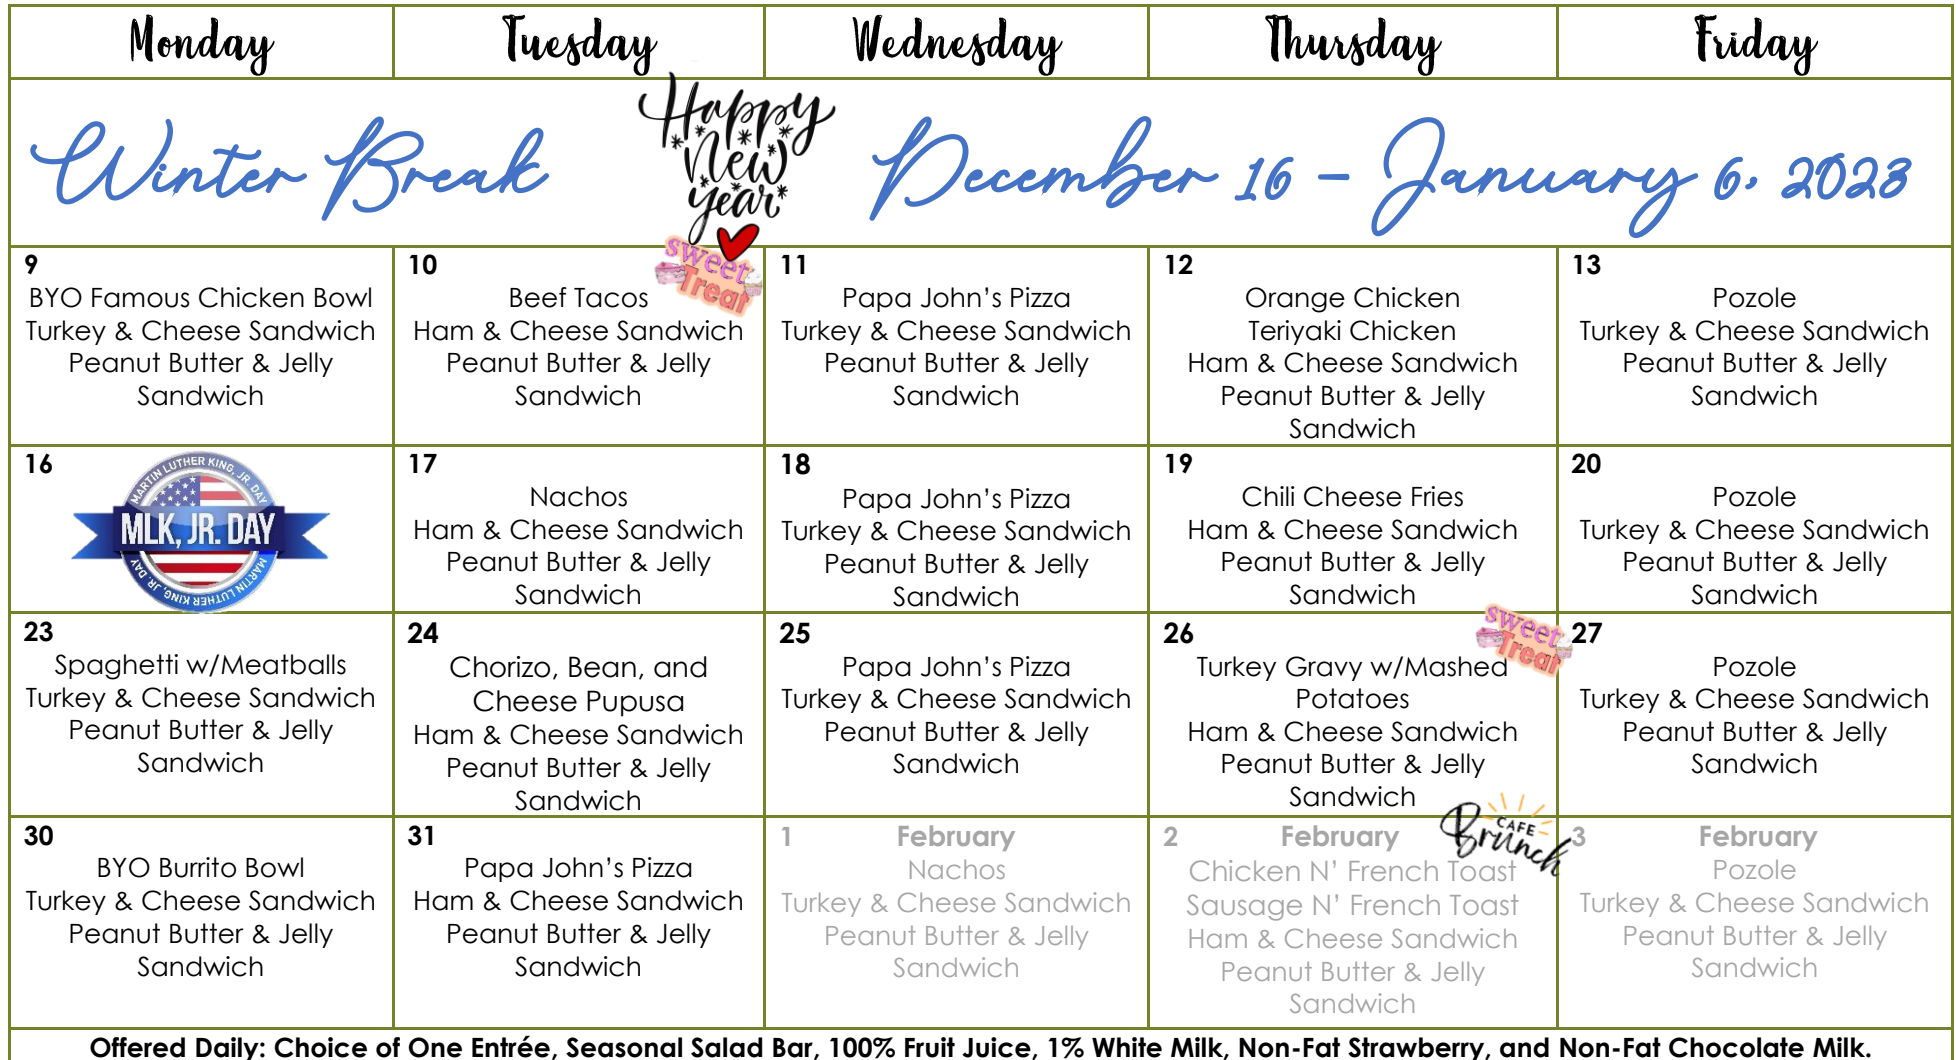 Monday
Tuesday
Wednesday
Thursday
Friday
Winter Break
Happy
New
year
December 16 – January 6, 2023
9
BYO Famous Chicken Bowl
Turkey & Cheese Sandwich
Peanut Butter & Jelly
Sandwich
10
sweet
Treat
Beef Tacos
Ham & Cheese Sandwich
Peanut Butter & Jelly
Sandwich
11
Papa John’s Pizza
Turkey & Cheese Sandwich
Peanut Butter & Jelly
Sandwich
12
Orange Chicken
Teriyaki Chicken
Ham & Cheese Sandwich
Peanut Butter & Jelly
Sandwich
13
Pozole
Turkey & Cheese Sandwich
Peanut Butter & Jelly
Sandwich
16
MARTIN LUTHER KING, JR. DAY
MLK, JR. DAY
MARTIN LUTHER KING, JR. DAY
17
Nachos
Ham & Cheese Sandwich
Peanut Butter & Jelly
Sandwich
18
Papa John’s Pizza
Turkey & Cheese Sandwich
Peanut Butter & Jelly
Sandwich
19
Chili Cheese Fries
Ham & Cheese Sandwich
Peanut Butter & Jelly
Sandwich
20
Pozole
Turkey & Cheese Sandwich
Peanut Butter & Jelly
Sandwich
23
Spaghetti w/Meatballs
Turkey & Cheese Sandwich
Peanut Butter & Jelly
Sandwich
24
Chorizo, Bean, and
Cheese Pupusa
Ham & Cheese Sandwich
Peanut Butter & Jelly
Sandwich
25
Papa John’s Pizza
Turkey & Cheese Sandwich
Peanut Butter & Jelly
Sandwich
26
sweet
Treat
Turkey Gravy w/Mashed
Potatoes
Ham & Cheese Sandwich
Peanut Butter & Jelly
Sandwich
27
Pozole
Turkey & Cheese Sandwich
Peanut Butter & Jelly
Sandwich
30
BYO Burrito Bowl
Turkey & Cheese Sandwich
Peanut Butter & Jelly
Sandwich
31
Papa John’s Pizza
Ham & Cheese Sandwich
Peanut Butter & Jelly
Sandwich
1 February
Nachos
Turkey & Cheese Sandwich
Peanut Butter & Jelly
Sandwich
2 February
CAFE
Brunch
Chicken N’ French Toast
Sausage N’ French Toast
Ham & Cheese Sandwich
Peanut Butter & Jelly
Sandwich
3 February
Pozole
Turkey & Cheese Sandwich
Peanut Butter & Jelly
Sandwich
Offered Daily: Choice of One Entrée, Seasonal Salad Bar, 100% Fruit Juice, 1% White Milk, Non-Fat Strawberry, and Non-Fat Chocolate Milk.